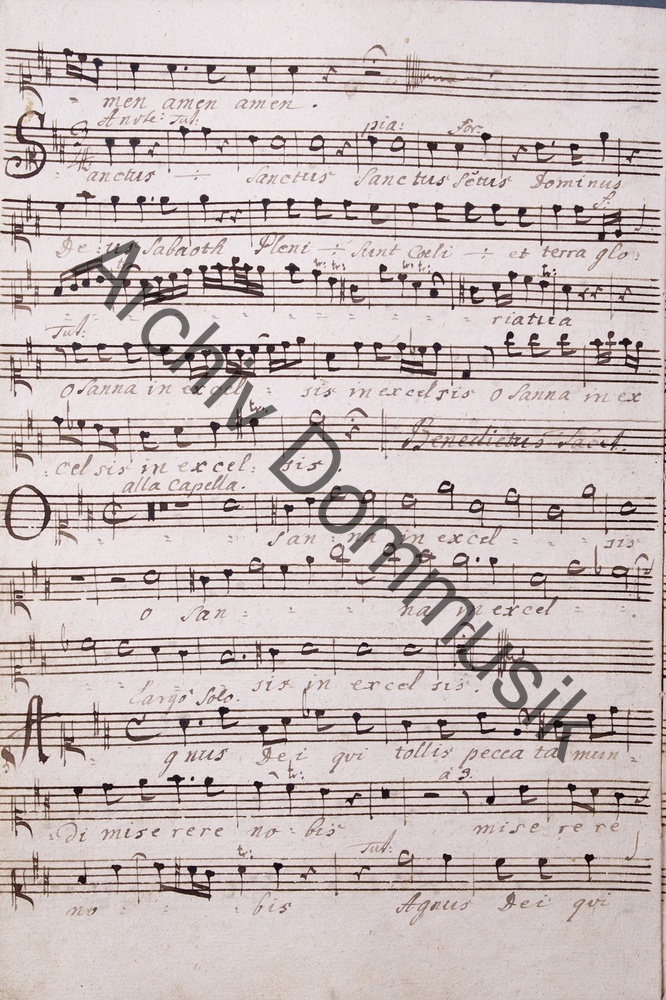 men amen amen.
Andte: Tut: pia: for:
Sanctus Sanctus Sanctus Sctus Dominus
De us Sabaoth Pleni sunt Coeli et terra glo
tr: tr: tr: tr: tr:
riatua
Tut:
O Sanna in excel sis in excelsis O Sanna in ex
cel sis in excel sis.
Benedictus Tacet.
alla Capella.
O san na in excel sis
O san na in excel
sis in excel sis.
Largo Solo.
Agnus Dei qui tollis pecca ta mun
tr: a 9.
di mise rere no bis mise re re
tr: Tut:
no bis Agnus Dei qui
Archiv Dommusik